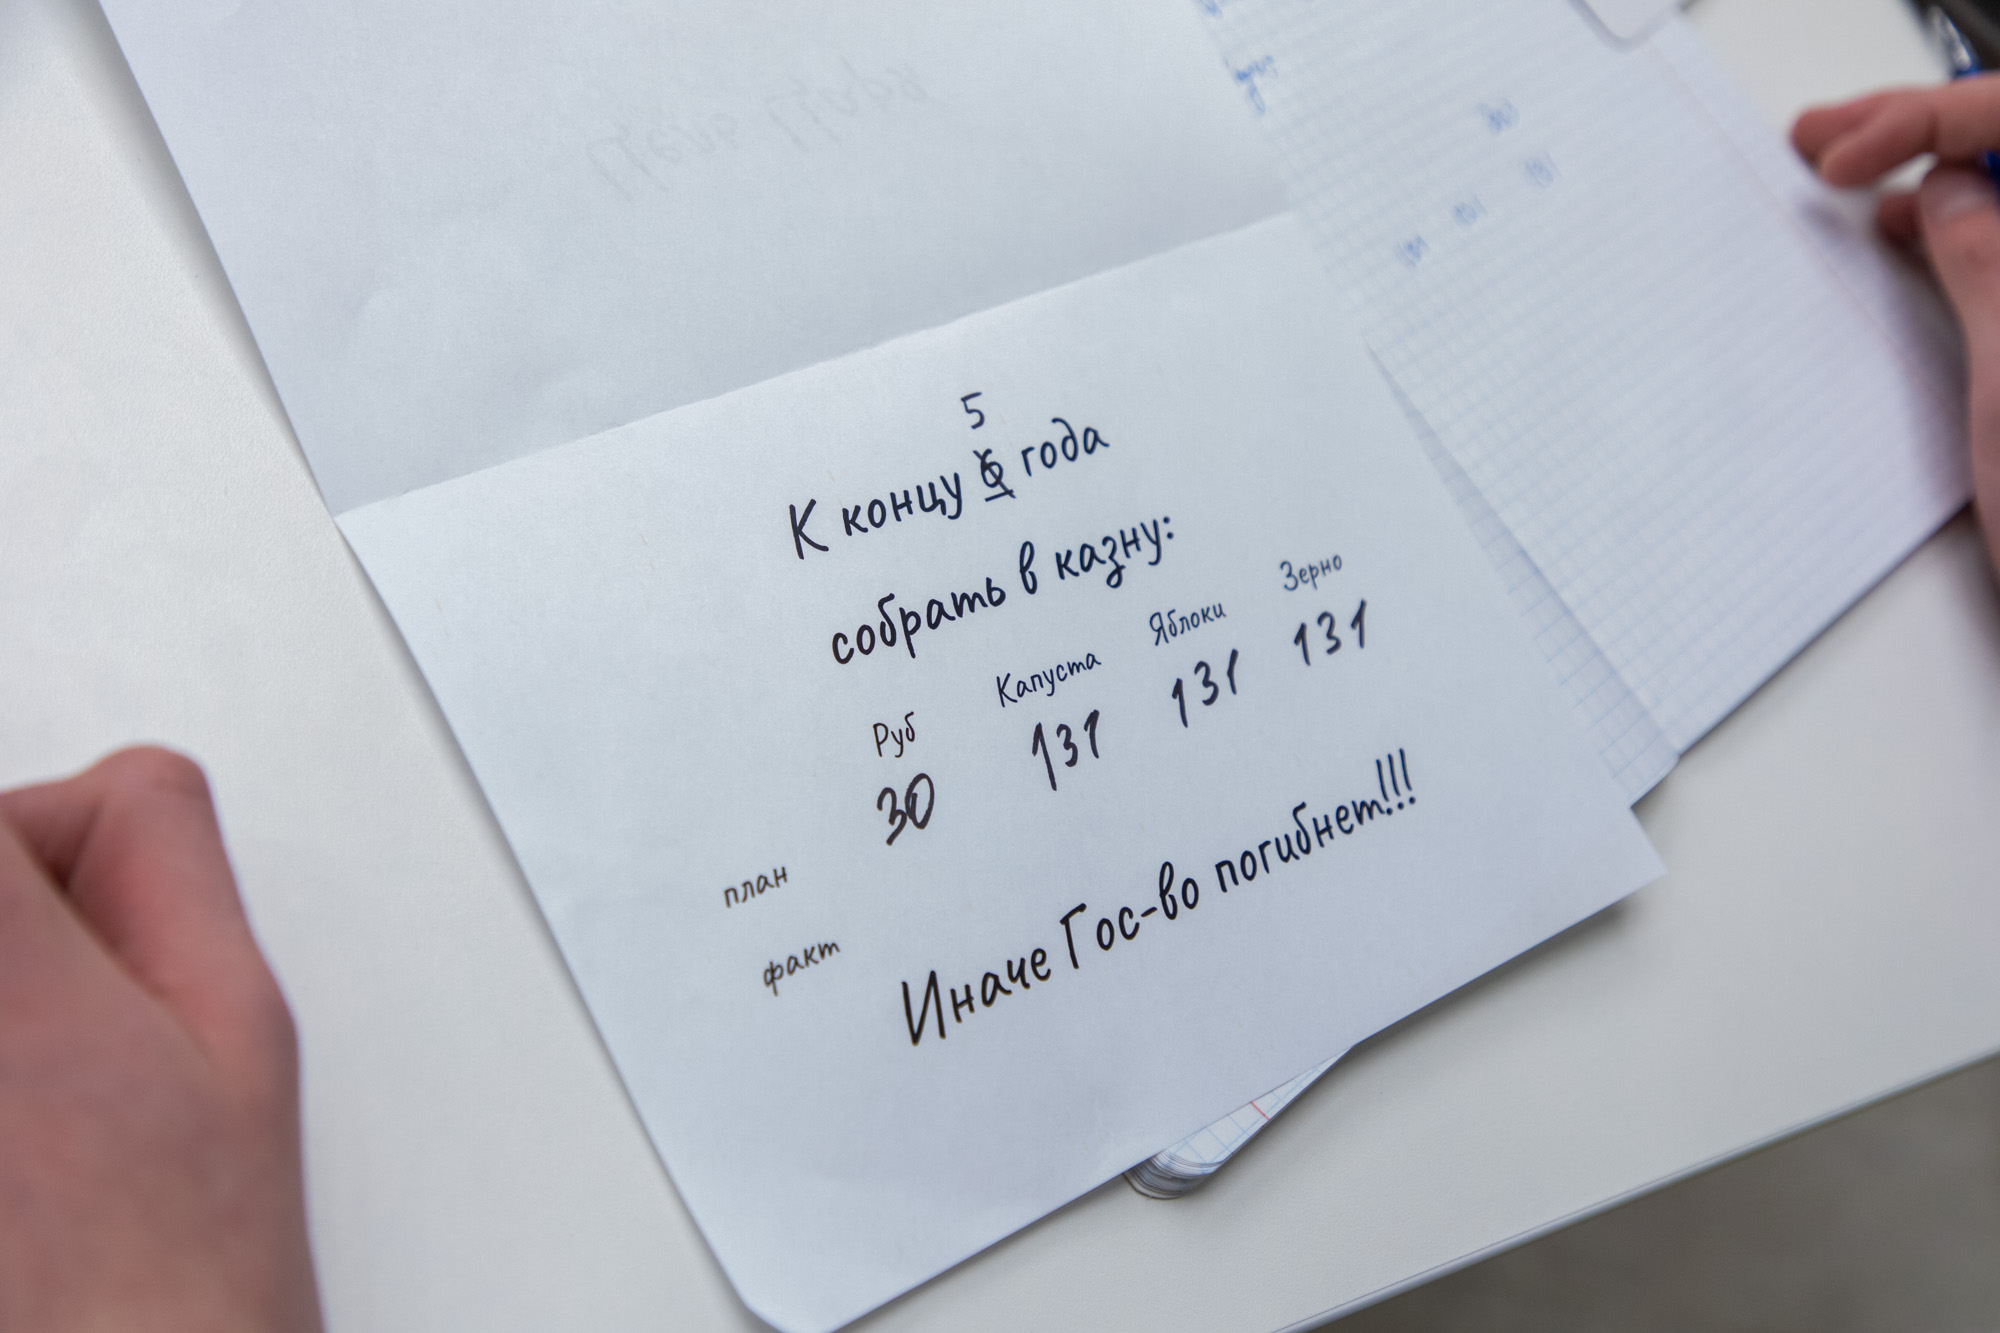 5
К концу 6 года
собрать в казну:
Руб Капуста Яблоки Зерно
30 131 131 131
план
факт
Иначе Гос-во погибнет!!!